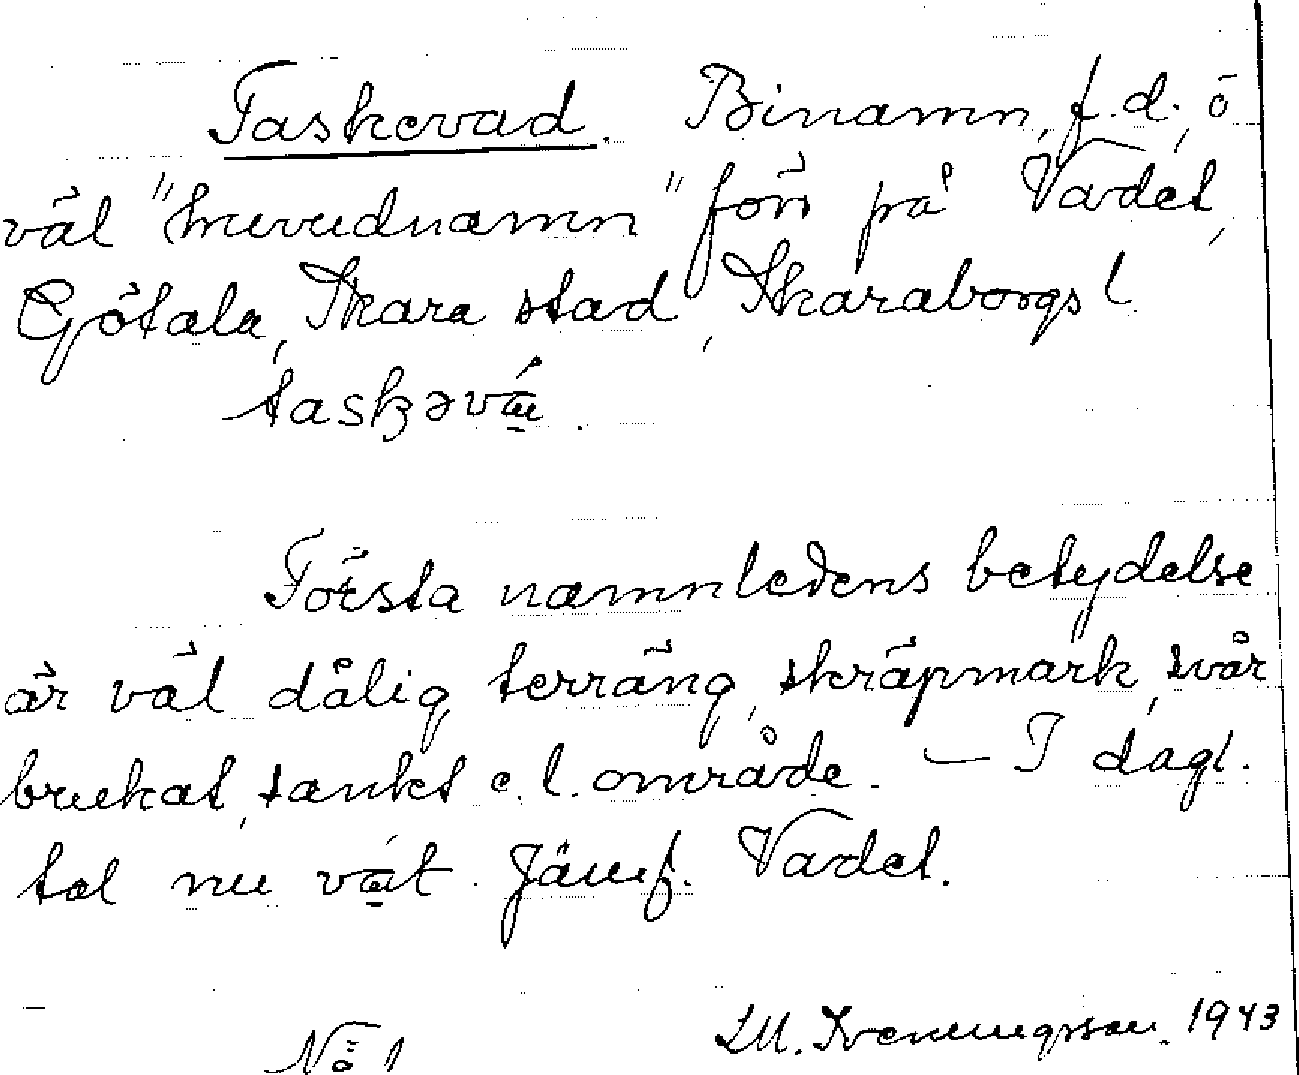 Taskevad. Binamn, f. d., o
väl "huvudnamn" förr på Vadet,
Götala, Skara stad, Skaraborgs l.
taskəvá.
Första namnledens betydelse
är väl dålig terräng, skräpmark, svår
brukat, sankt e. l. område. — I dagl.
tal nu vát. Jämf. Vadet.
No 1
1943